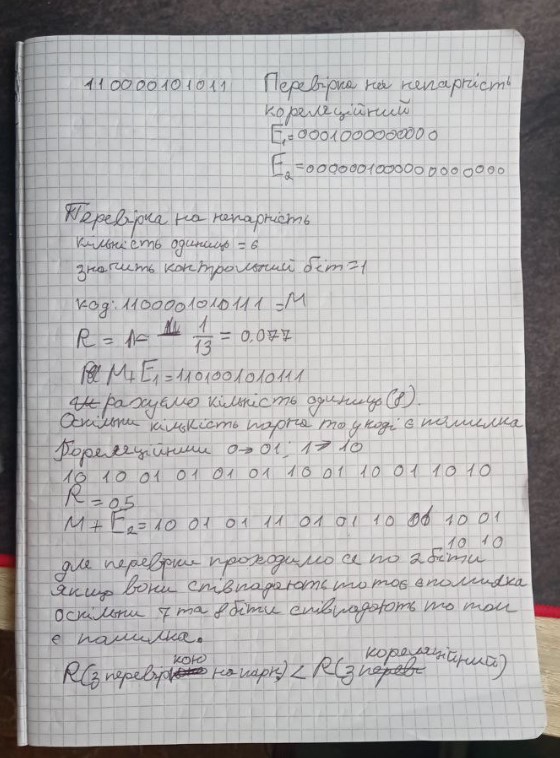 110000101011 Перевірка на непарність
кореляційний
E₁=000100000000
E₂=000000100000000000000
Перевірка на непарність
кількість одиниць = 6
значить контрольний біт=1
код: 1100001010111 =M
R = 1/13 = 0.077
M+E₁=1101001010111
рахуємо кількість одиниць (8).
Оскільки кількість парна то у коді є помилка
Кореляційний 0→01; 1→10
10 10 01 01 01 01 10 01 10 01 10 10
R = 0,5
M + E₂=10 01 01 11 01 01 10 01 10 01
10 10
для перевірки проходимося по 2 біти
якщо вони співпадають то тоє помилка
оскільки 7 та 8 біти співпадають то там
є памилка.
R(з перевіркою на парн) < R(з кореляційний)